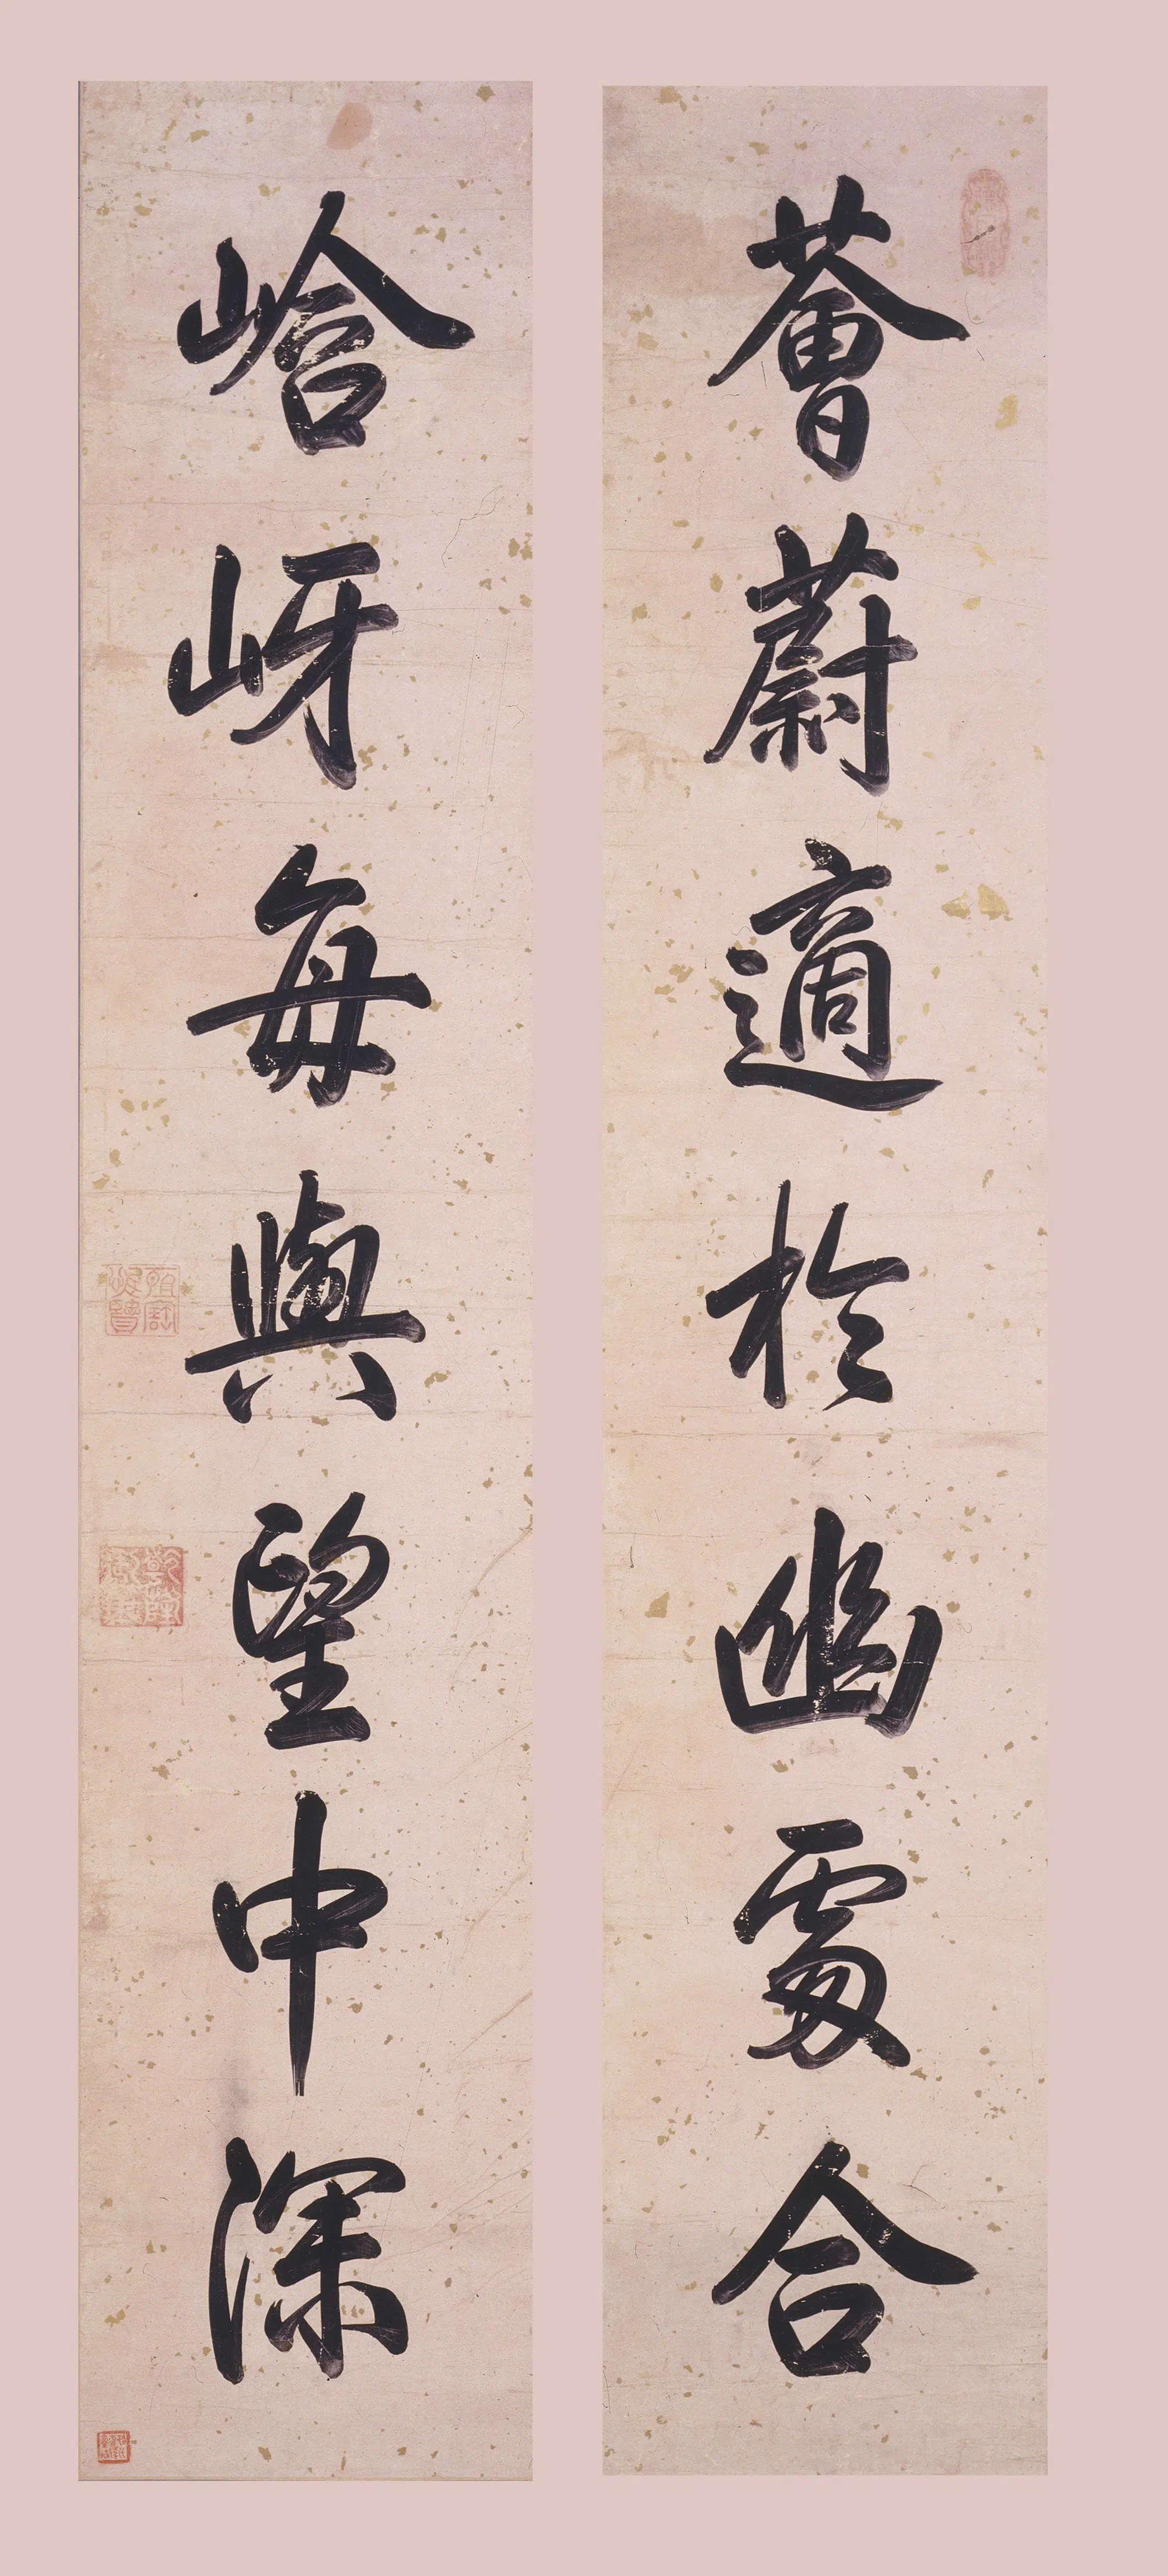 薈蔚適於幽處合
峆岈每與望中深